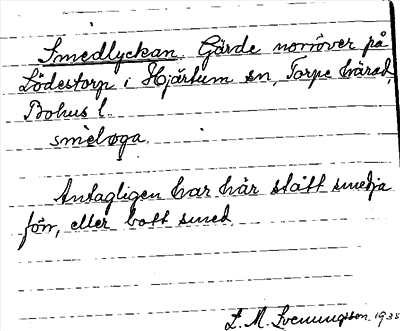 Smedlyckan. Gärde norröver på
Lödestorp i Hjärtum sn, Torpe härad,
Bohus l.
smèløga.
Antagligen har här stått smedja
förr, eller bott smed.
L. M. Svenungsson. 1935